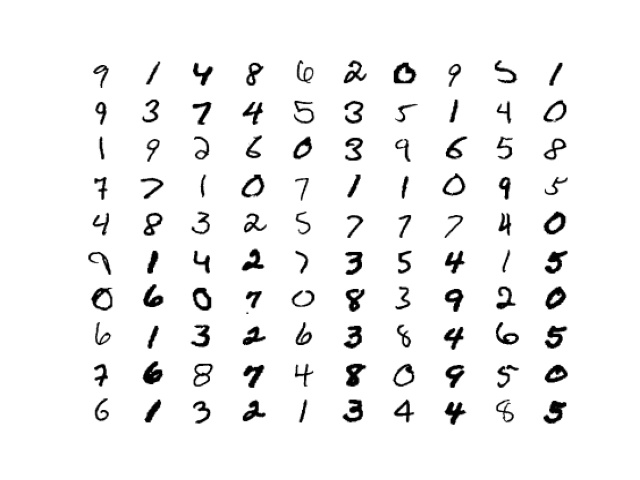 9 1 4 8 6 2 0 9 5 1
9 3 7 4 5 3 5 1 4 0
1 9 2 6 0 3 9 6 5 8
7 7 1 0 7 1 1 0 9 5
4 8 3 2 5 7 7 7 4 0
9 1 4 2 7 3 5 4 1 5
0 6 0 7 0 8 3 9 2 0
6 1 3 2 6 3 8 4 6 5
7 6 8 7 4 8 0 9 5 0
6 1 3 2 1 3 4 4 8 5